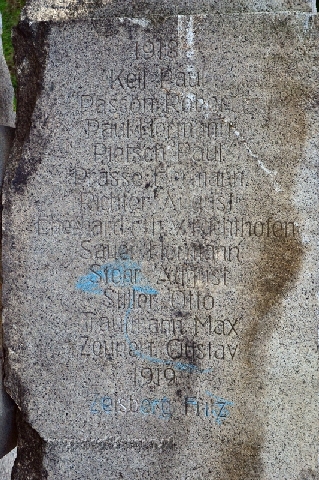 1918
Keil Paul
Passon Robert
Paul Hermann
Rietsch Paul
Prasse Hermann
Richter August
Eberhard
Sauer Hermann
Stehr August
Stiller Otto
Trautmann Max
Gustav
1919
Zeisberg Fritz